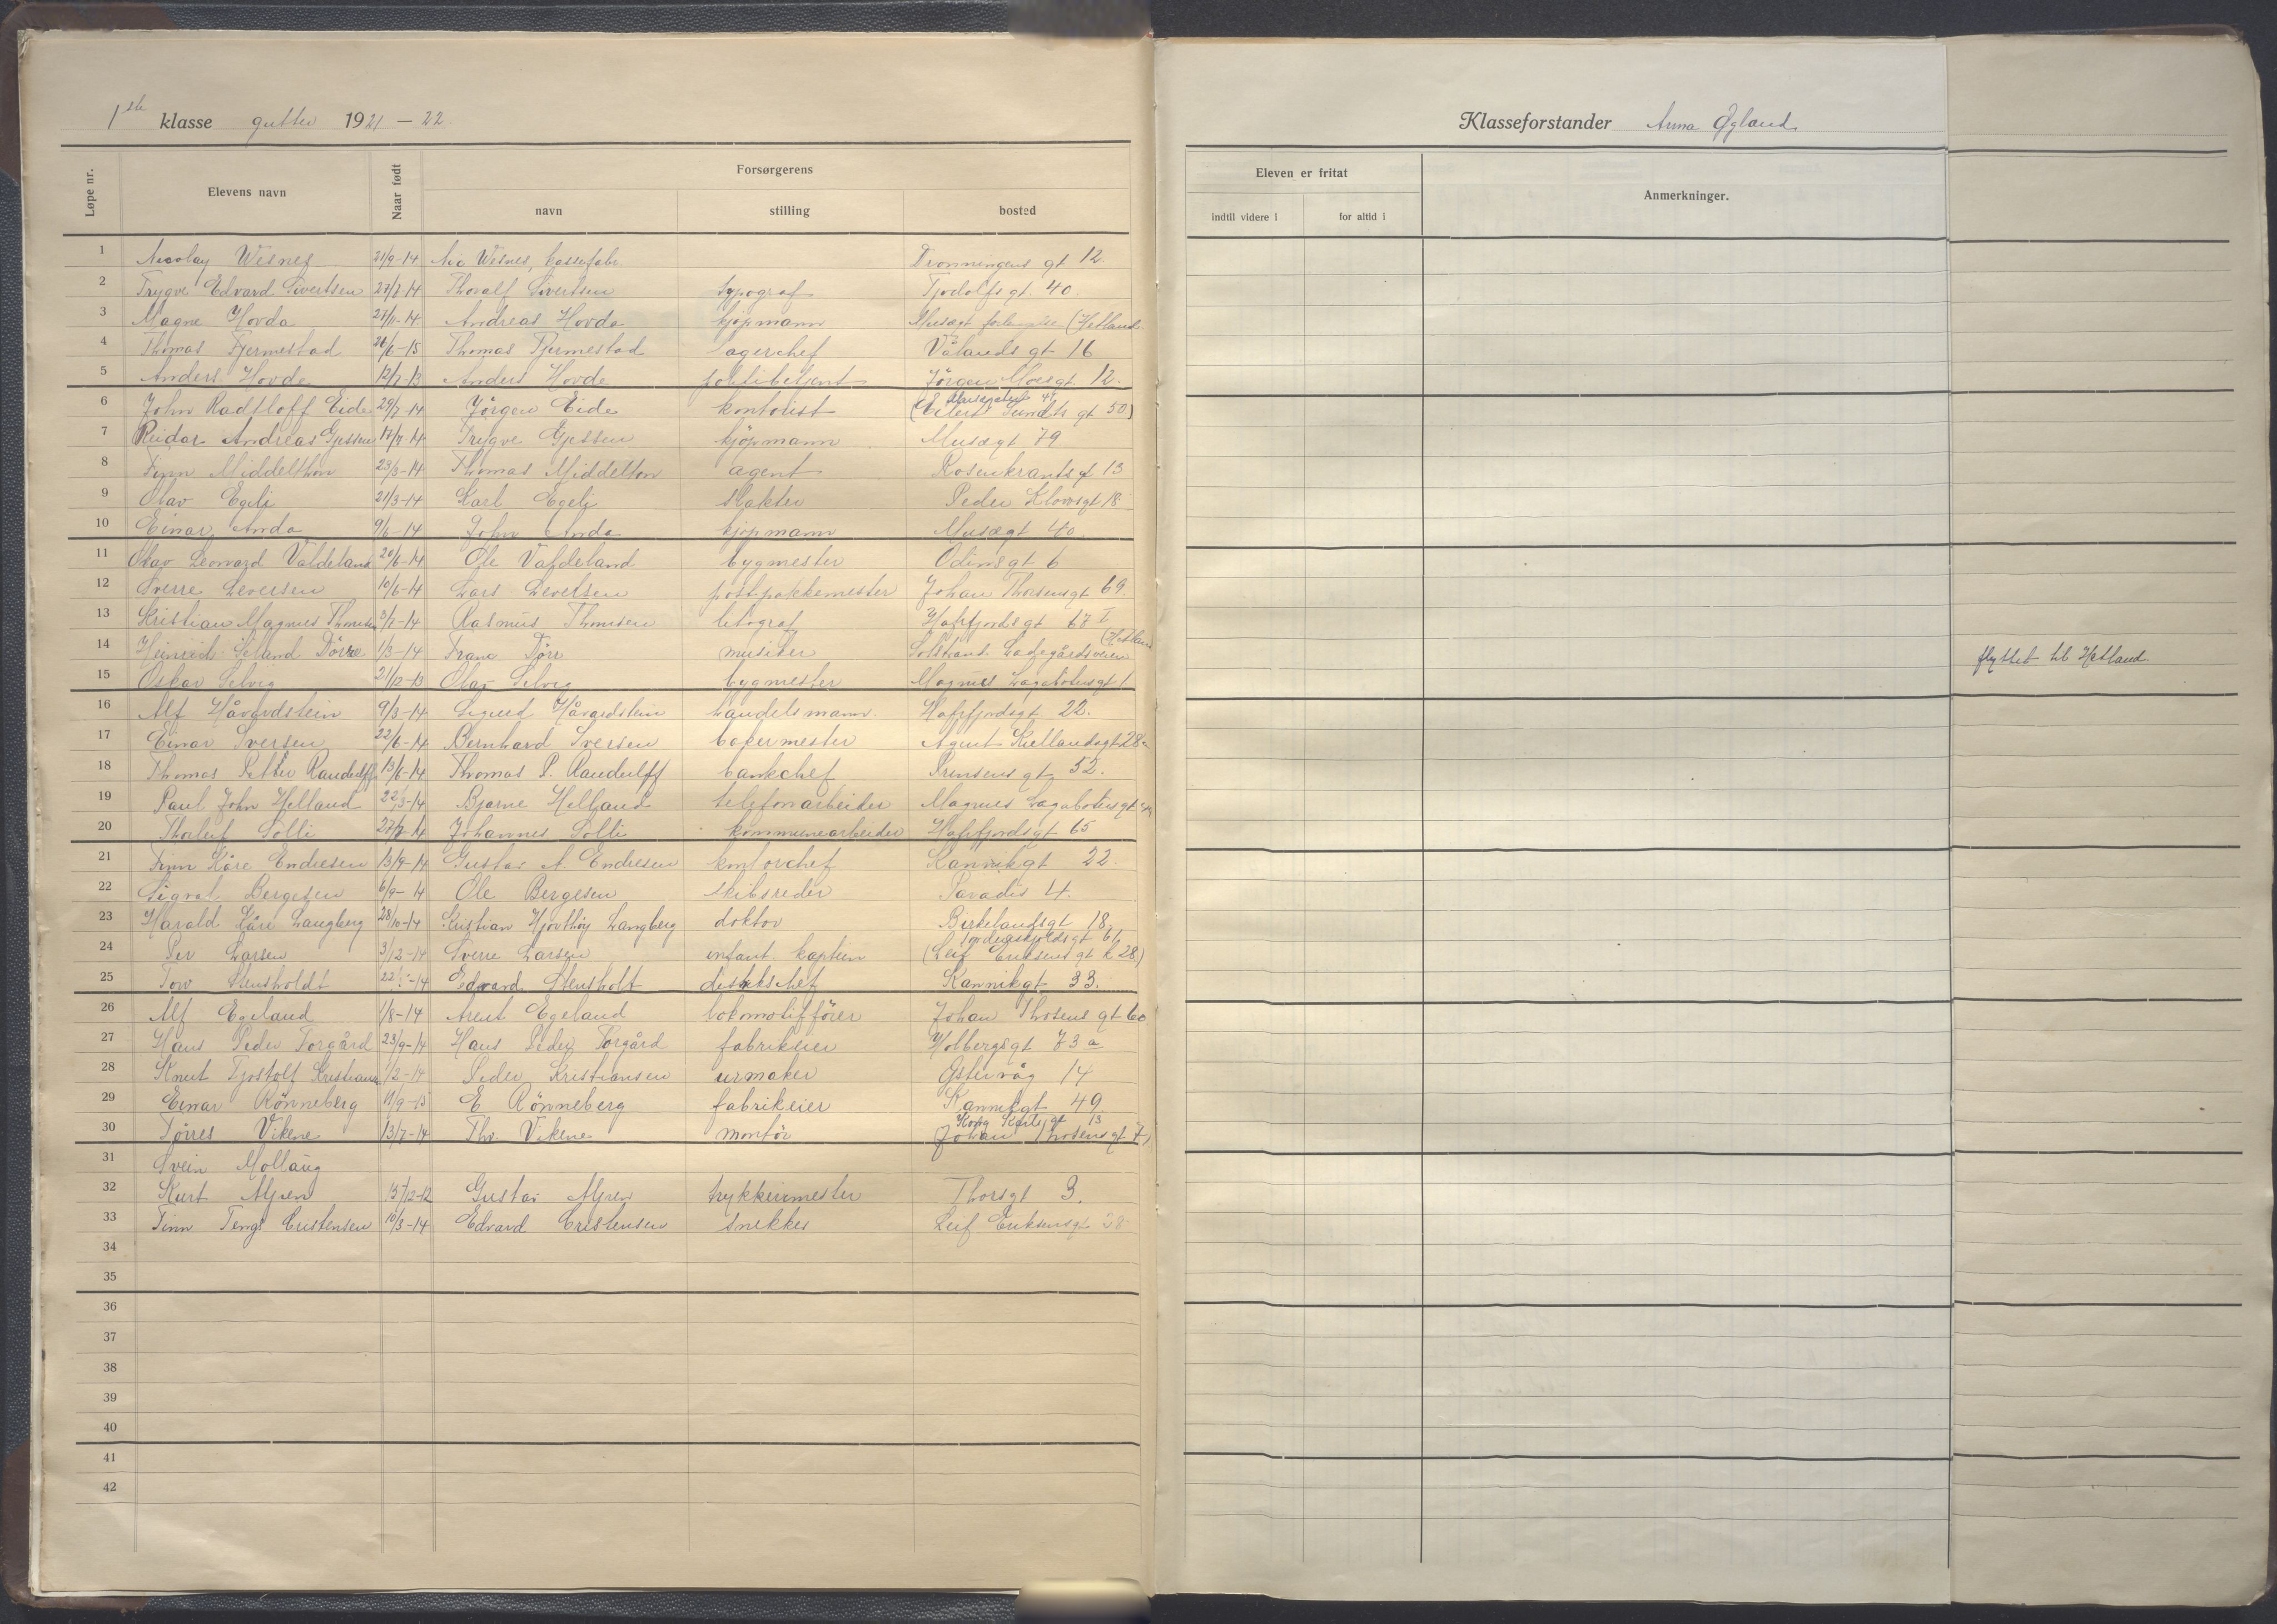 1ste klasse gutter 1921 – 22.
Løpe nr. Elevens navn Naar født Forsørgerens
navn stilling bosted
1 Nicolay Wisnes 21/9-14 Nic Wisnes, kassefabr. Dronningens gt 12.
2 Trygve Edvard Sivertsen 27/7-14 Thoralf Sivertsen typograf Tjodolfs gt. 40
3 Magne Hovda 27/11-14 Andreas Hovda kjøpmann Musægt (Hetland
4 Thomas Fjermestad 26/6-15 Thomas Fjermestad lagerchef Vålands gt 16
5 Anders Hovde 12/7-13 Anders Hovde politibetjent Jörgen Moesgt. 12.
6 John Radtloff Eide 29/7-14 Jörgen Eide kontorist (Eilert Sundts gt 50)
7 Reidar Andreas Gjesteen 17/7-14 Trygve Gjesteen kjöpmann Musægt 79
8 Finn Middelthon 23/3-14 Thomas Middelton agent Rosenkrantsgt 13
9 Olav Egeli 21/3-14 Karl Egeli slakter Peder Klowsgt 18
10 Einar Anda 9/6-14 John Anda kjøpmann Musægt 40.
11 Olav Leonard Valdeland 20/6-14 Ole Valdeland bygmester Odinsgt 6
12 Sverre Severtsen 10/6-14 Lars Severtsen postpakkemester Johan Thorsensgt 69.
13 Kristian Magnus Thomsen 3/7-14 Rasmus Thomsen litograf Hafrfjordsgt 67 I
14 Heinrich Seland Dörre 1/3-14 Franc Dörr musiker Solstrand Ladegårdsveien (Hetland
15 Oskar Selvig 21/12-13 Olav Selvig bygmester Magnus Lagabotersgt 1
16 Alf Håvardstein 9/3-14 Sigurd Håvardstein handelsmann. Hafrfjordsgt. 22.
17 Einar Iversen 22/6-14 Bernhard Iversen bakermester Agent Kiellandsgt 28a
18 Thomas Petter Randulff 13/6-14 Thomas P. Randulff bankchef Prinsens gt 52.
19 Paul John Helland 22/3-14 Bjarne Helland telefonarbeider Magnus Lagabotersgt
20 Thorleif Solli 27/7-14 Johannes Solli kommunearbeider Hafrfjordsgt 65
21 Finn Kåre Endresen 13/9-14 Gustav A. Endresen kontorchef Kannikgt 22.
22 Sigval Bergesen 6/9-14 Ole Bergesen skibsreder Paradis 4.
23 Harald Kåre Langberg 28/10-14 Kristian Hjorthöy Langberg doktor Birkelandsgt 18,
24 Per Larsen 3/12-14 Sverre Larsen infant. kaptein Tordenskjoldsgt 61,
(Leif Eriksens gt 28)
25 Tor Stensholdt 22/ -14 Edvard Stensholt distriktschef Kannikgt 33.
26 Alf Egeland 1/8-14 Arent Egeland lokomotiffører Johan Thorsens gt 60
27 Hans Peder Torgård 23/9-14 Hans Peder Torgård fabrikeier Holbergsgt 73 a
28 Knut Tjostolf Kristiansen /2-14 Peder Kristiansen urmaker Østervåg 14
29 Einar Rönneberg 11/9-13 E Rönneberg fabrikeier Kannikgt 49.
30 Törres Vikene 13/7-14 Thv. Vikene montör Kong Karls gt 13
(Johan Thorsensgt 4)
31 Svein Mollaug
32 Kurt Alpen 15/12-12 Gustav Alpen trykkerimester Thorsgt 3.
33 Finn Tengs Cristensen 10/3-14 Edvard Cristensen snekker Leif Eriksensgt 28
34
35
36
37
38
39
40
41
42
Klasseforstander Anna Øgland.
Eleven er fritat Anmerkninger.
indtil videre i for altid i
flyttet til Hetland.